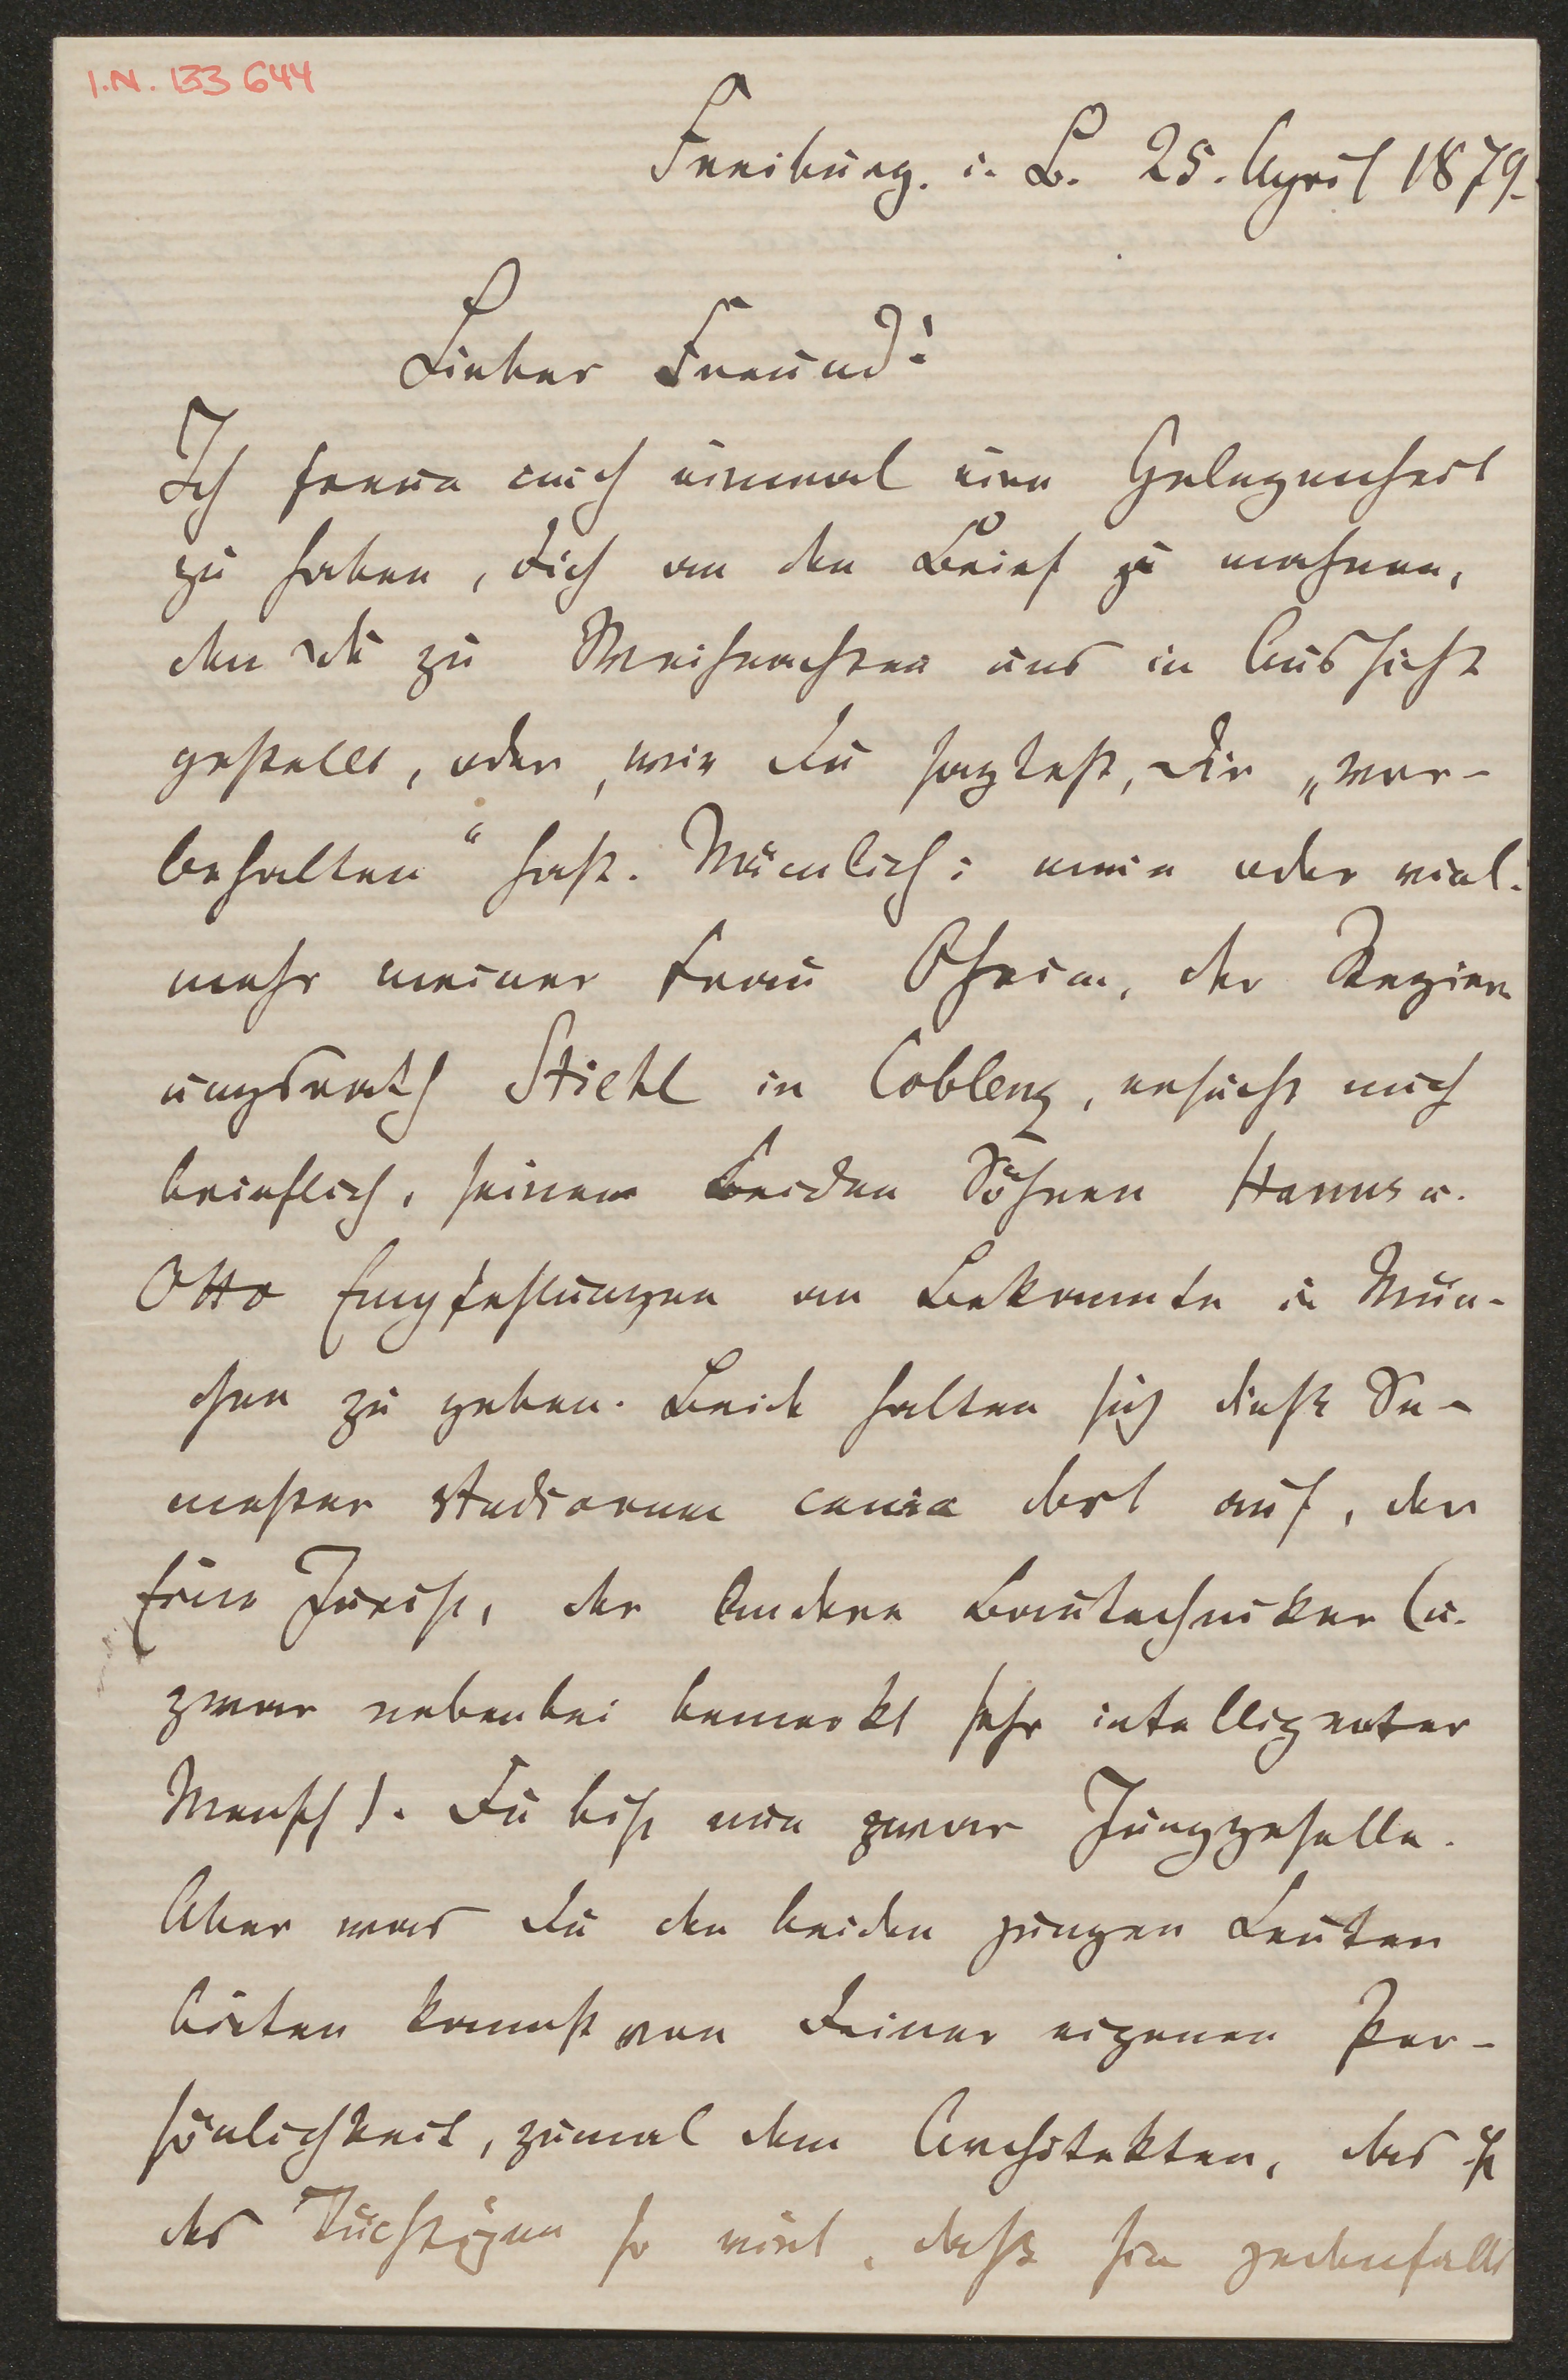 I.N. 133 644
Freiburg. i. B. 25. April 1879.
Lieber Freund!
Ich freue mich einmal eine Gelegenheit
zu haben, dich an den Brief zu mahnen,
den du zu Weihnachten uns in Aussicht
gestellt, oder, wie Du sagtest, Dir „vor-
behalten“ hast. Nämlich: mein oder viel-
mehr meiner Frau Oheim, der Regier
ungsrath Stiehl in Coblenz, ersucht mich
brieflich, seinen beiden Söhnen Hanns u.
Otto Empfehlungen an Bekannte in Mün-
chen zu geben. Beide halten sich dieß Se-
mester studiorum causa dort auf, der
Eine Jurist, der Andere Bautechniker (u.
zwar nebenbei bemerkt sehr intelligenter
Mensch). Du bist nun zwar Junggeselle.
Aber was Du den beiden jungen Leuten
bieten kannst von Deiner eigenen Per-
sönlichkeit, zumal dem Architekten, das ist
des Tüchtigen so viel, daß sie jedenfalls